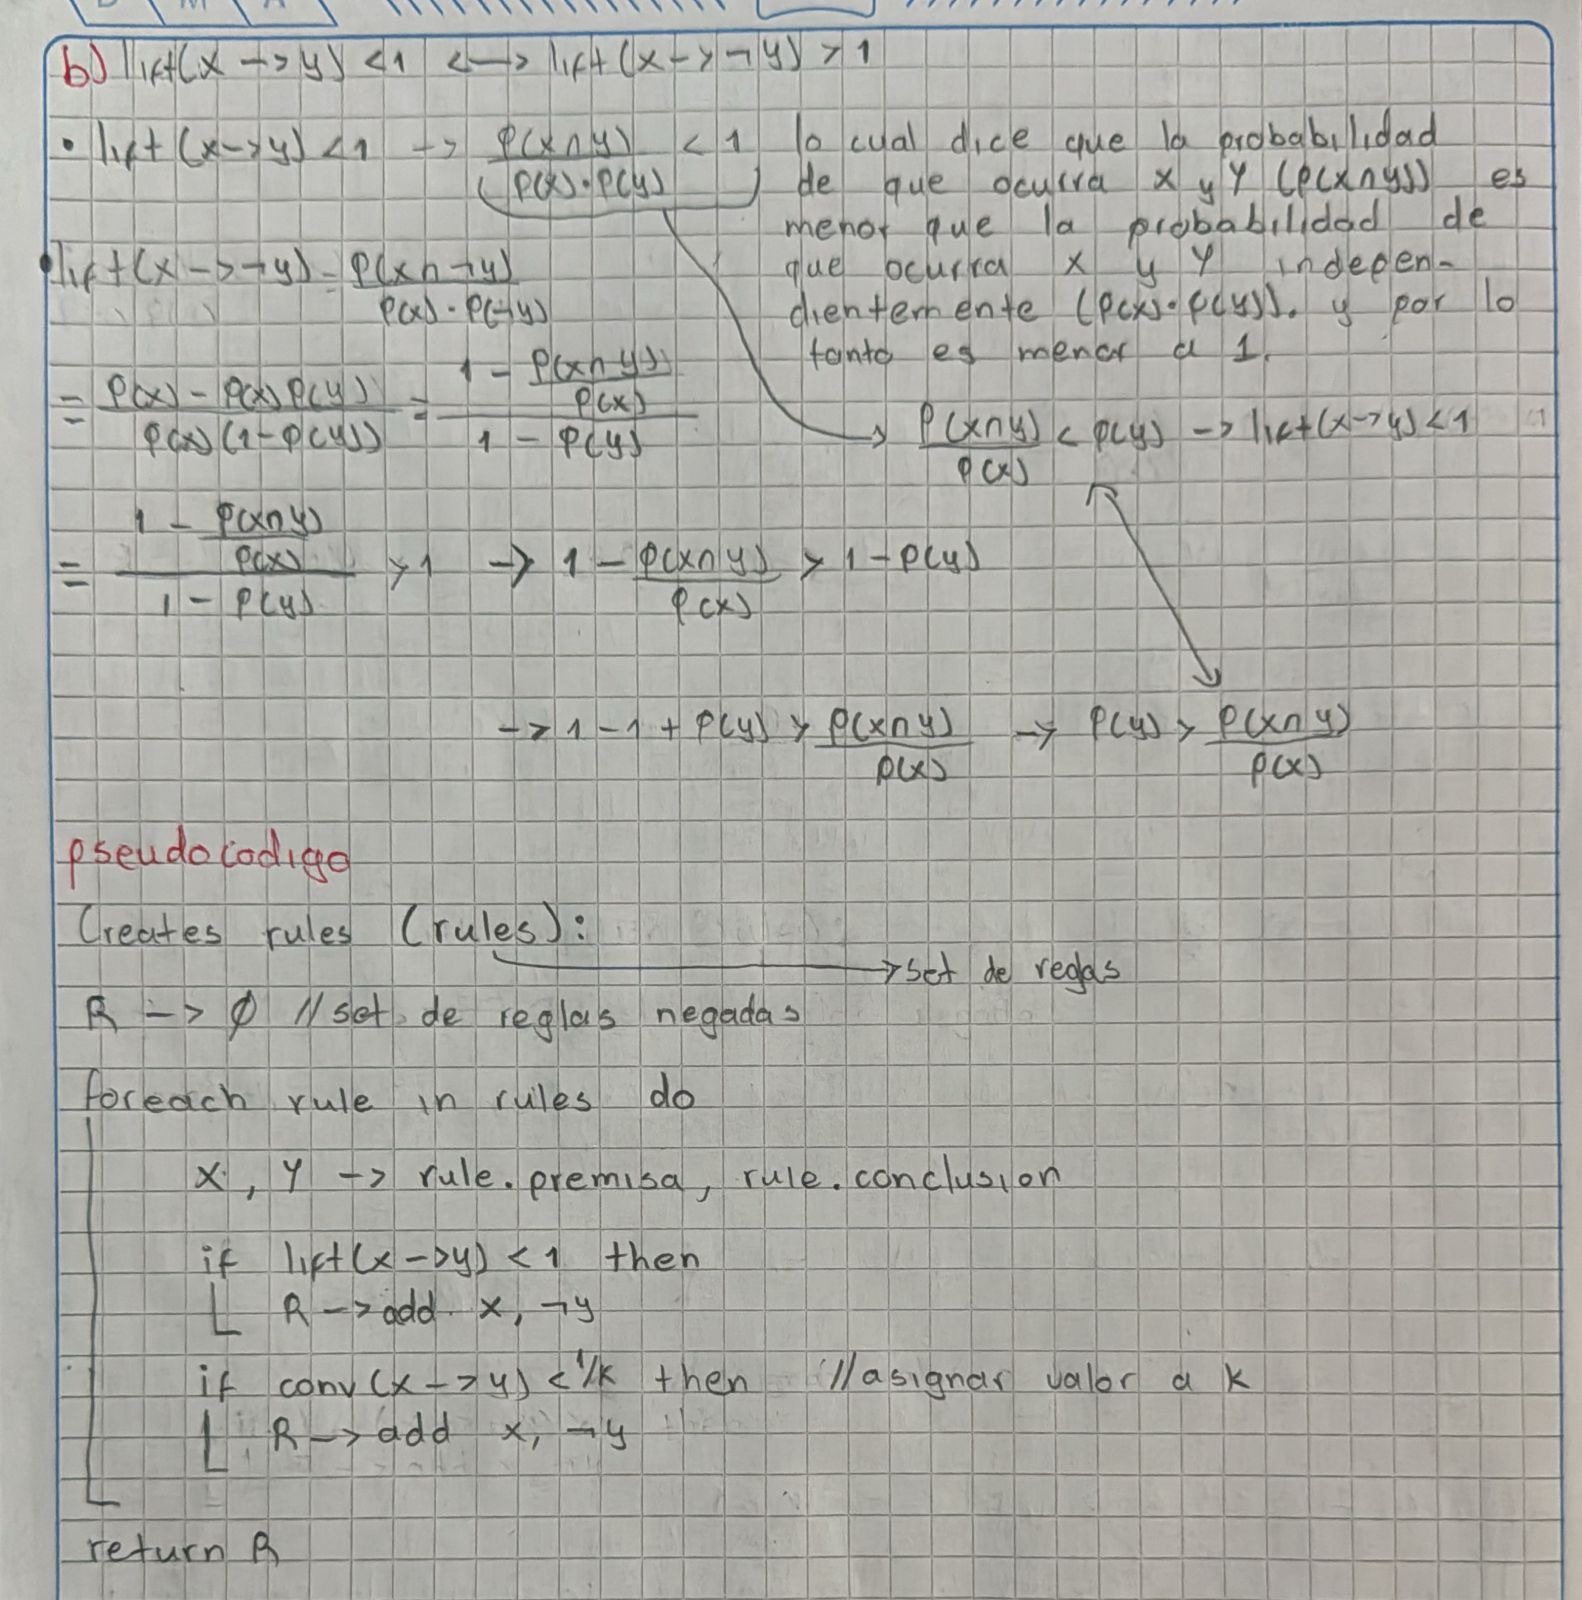 D M A
b) lift(x -> y) < 1 <-> lift(x -> ¬y) > 1
• lift(x->y) < 1 -> P(x∩y) / (P(x)·P(y)) < 1 lo cual dice que la probabilidad
de que ocurra x y Y (P(x∩y)) es
menor que la probabilidad de
que ocurra x y Y indepen-
dientemente (P(x)·P(y)). y por lo
tanto es menor a 1.
• lift(x -> ¬y) = P(x∩¬y) / P(x)·P(¬y)
= P(x) - P(x)P(y) / P(x)(1-P(y)) = 1 - P(x∩y)/P(x) / 1 - P(y)
P(x∩y)/P(x) < P(y) -> lift(x->y) < 1
= 1 - P(x∩y)/P(x) / 1 - P(y) > 1 -> 1 - P(x∩y)/P(x) > 1 - P(y)
-> 1 - 1 + P(y) > P(x∩y)/P(x) -> P(y) > P(x∩y)/P(x)
pseudocodigo
Creates rules (rules):
-> set de reglas
R -> ∅ // set de reglas negadas
foreach rule in rules do
x, Y -> rule.premisa, rule.conclusion
if lift(x->y) < 1 then
R -> add x, ¬y
if conv(x->y) < 1/k then // asignar valor a k
R -> add x, ¬y
return R